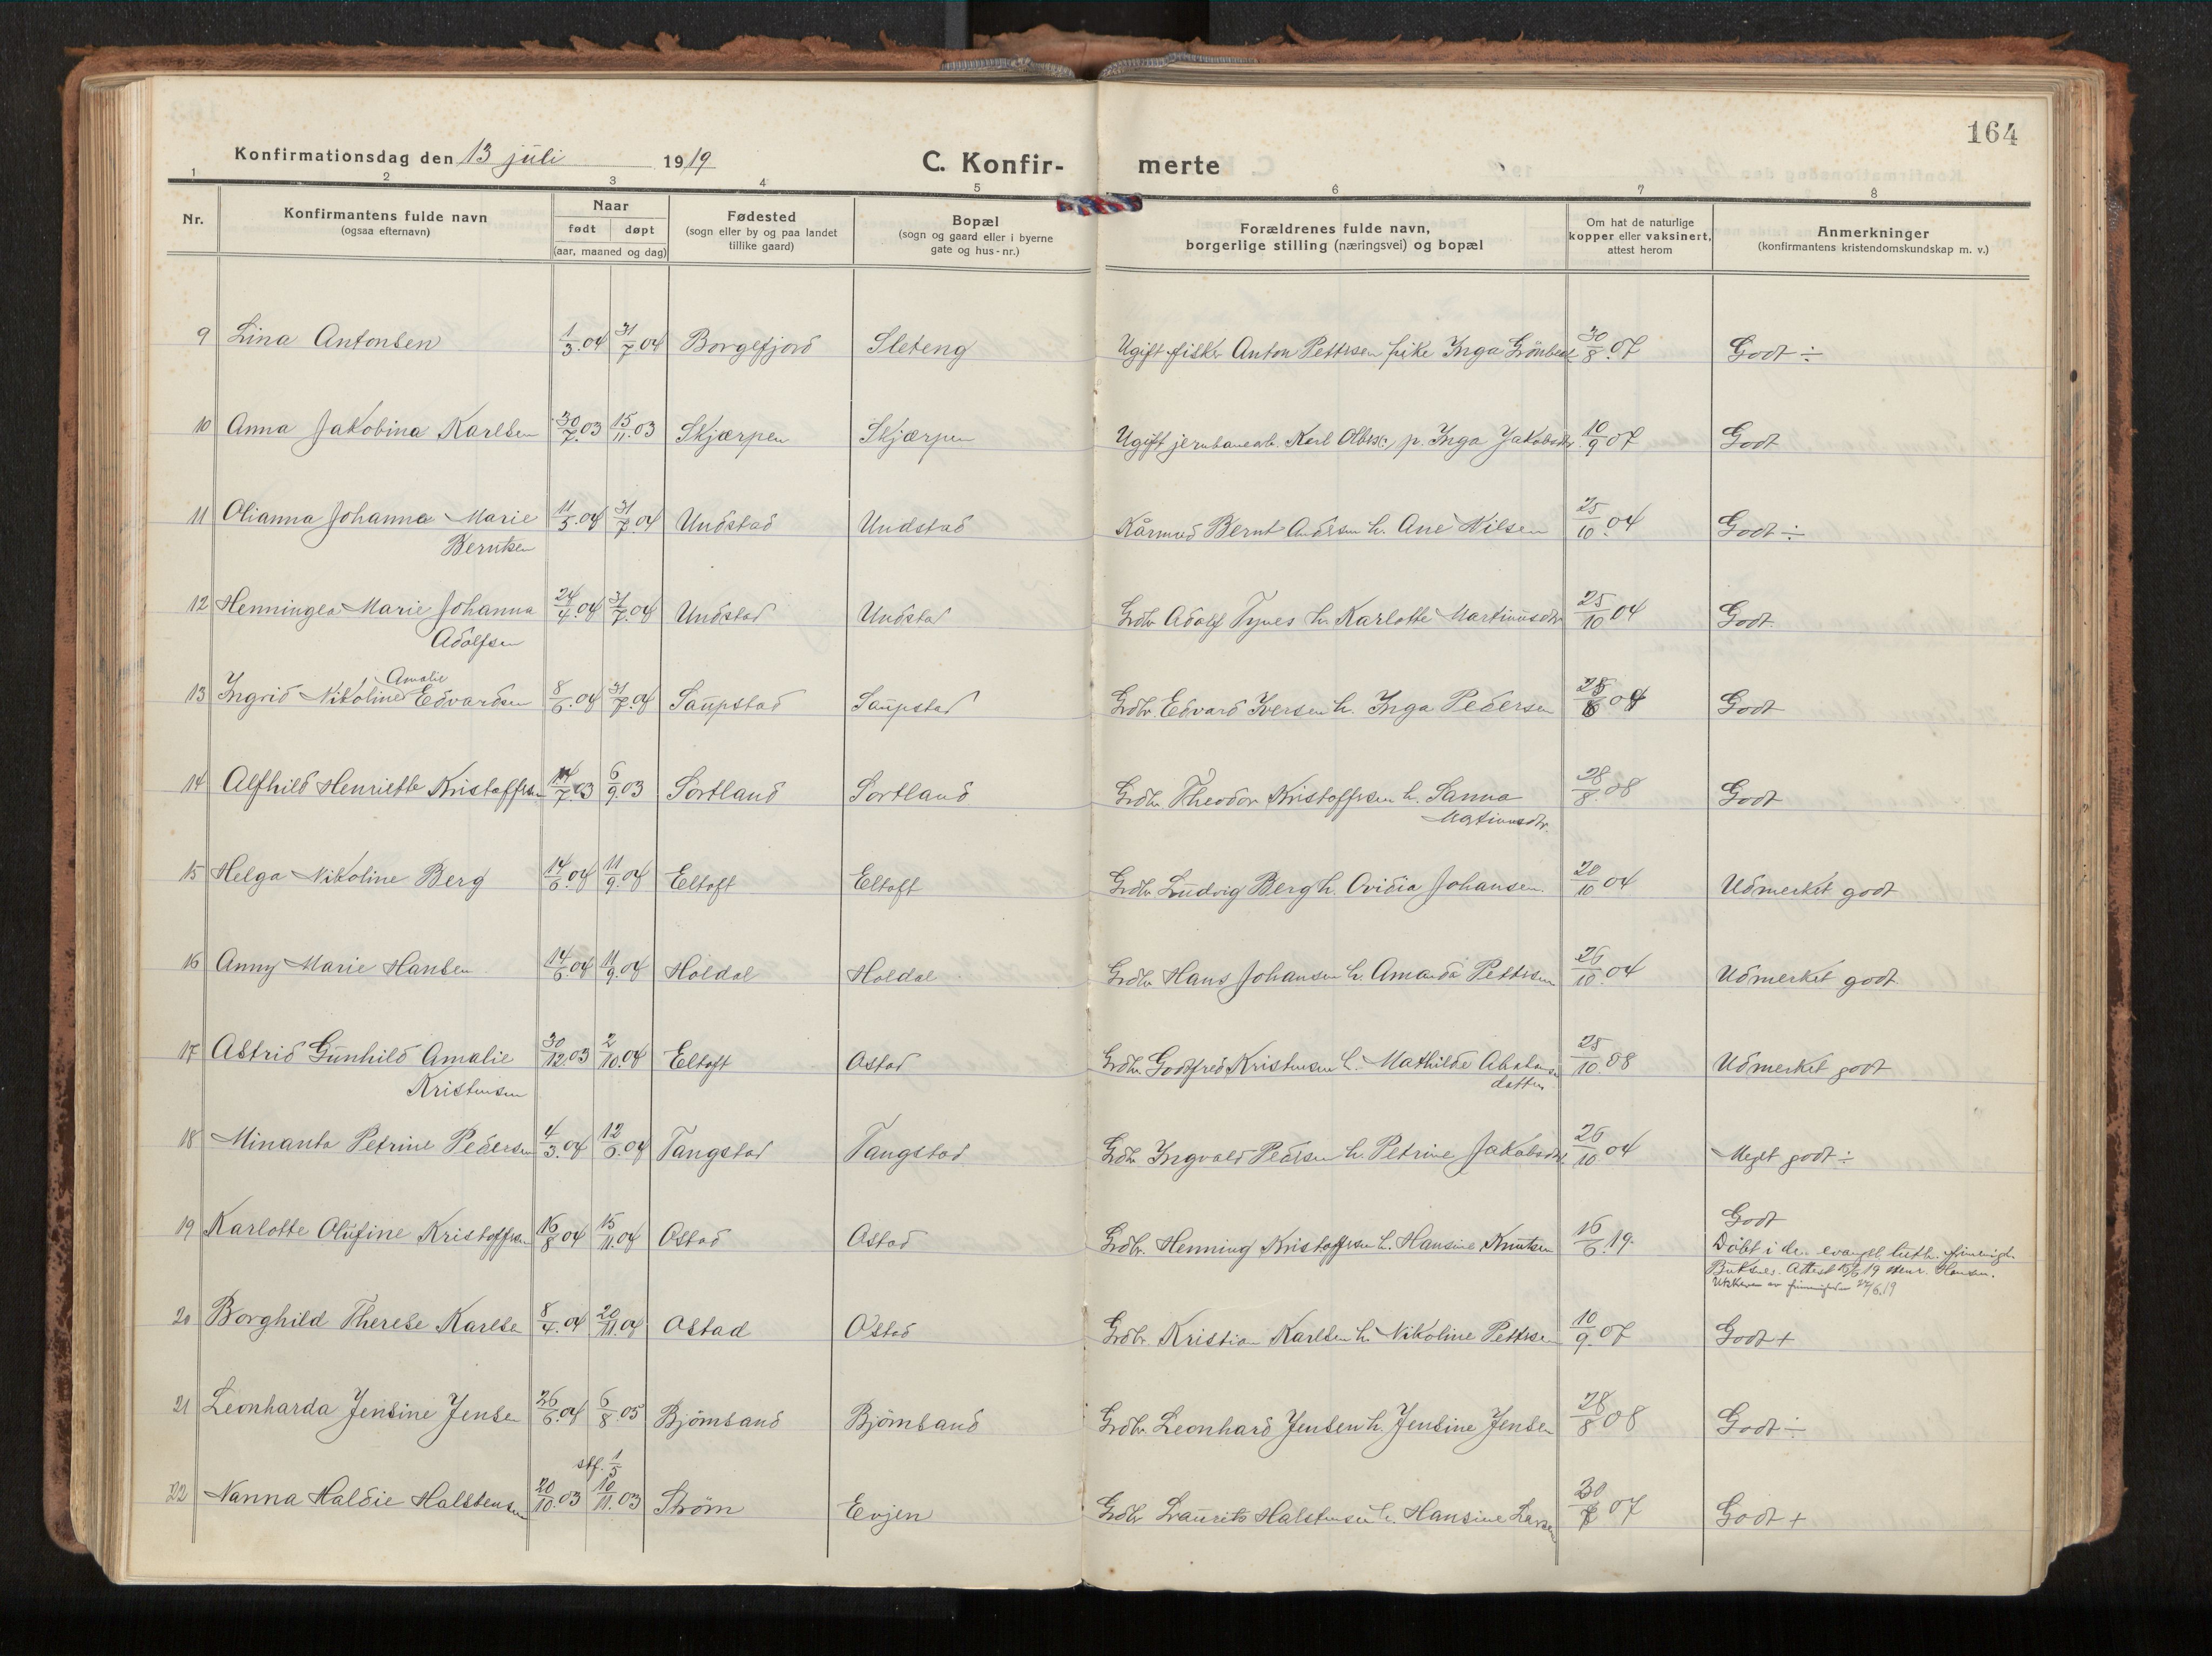 164
Konfirmationsdag den 13 juli 1919
C. Konfir- merte
1 2 3 4 5 6 7 8
Nr.
Konfirmantens fulde navn
(ogsaa efternavn)
Naar
født døpt
(aar, maaned og dag)
Fødested
(sogn eller by og paa landet
tillike gaard)
Bopæl
(sogn og gaard eller i byerne
gate og hus-nr.)
Forældrenes fulde navn,
borgerlige stilling (næringsvei) og bopæl
Om hat de naturlige
kopper eller vaksinert,
attest herom
Anmerkninger
(konfirmantens kristendomskundskap m. v.)
9 Lina Antonsen 1/3.04 31/7.04 Borgefjord Sleteng Ugift fisker Anton Pettersen pike Inga 30/8.07 Godt ÷
10 Anna Jakobina Karlsen 30/7.03 15/11.03 Skjærpen Skjærpen Ugift jernbanearb. Karl p. Inga Jakobsdtr. 10/9 07 Godt
11 Olianna Johanna Marie 31/7.04 Undstad Undstad Bernt Andersen h. Ane Nilsen 25/10.04 Godt ÷
Berntsen
12 Henningea Marie Johanna 24/4.04 31/7.04 Undstad Undstad Grdbr. Adolf Tynes h. Karlotte Martinusdtr 25/10 04 Godt.
Adolfsen
13 Ingrid Nikoline Amalie Edvardsen 8/6.04 31/7.04 Saupstad Saupstad Grdbr. Edvard Iversen h. Inga Pedersen Godt
14 Alfhild Henriette Kristoffersen 6/9.03 Sortland Sortland Grdbr. Theodor Kristoffersen h. Sanna 28/8.08 Godt
Martinusdtr.
15 Helga Nikoline Berg 14/6.04 11/9.04 Eltoft Eltoft Grdbr. Ludvig Berg h. Ovidia Johansen 20/10 04 Udmerket godt
16 Anny Marie Hansen 14/6.04 11/9.04 Holdal Holdal Grdbr. Hans Johansen h. Amanda Pettersen 26/10.04 Udmerket godt.
17 Astrid Gunhild Amalie 30/12.03 2/10.04 Eltoft Ostad Grdbr. Godtfred Kristensen h. Mathilde 10.08 Udmerket godt
Kristensen datter
18 Minanta Petrine Pedersen 4/3.04 12/6.04 Tangstad Tangstad Grdbr. Ingvald Pedersen h. Petrine Jakobsdtr. 26/10.04 Meget godt ÷
19 Karlotte Olufine Kristoffersen 16/8 04 15/11.04 Ostad Ostad Grdbr. Henning Kristoffersen h. Hansine Knutsen 16/6.19. Godt
Döbt i den evangel. luth. frimenigh.
Buksnes. Attest 15/6 19 Henr. Hansen.
20 Borghild Therese Karlsen 8/4.04 20/11.04 Ostad Ostad Grdbr. Kristian Karlsen h. Nikoline Pettersen 10/9.07 Godt +
21 Leonharda Jensine Jensen 26/6.04 6/8.05 Björnsand Björnsand Grdbr. Leonhard Jensen h. Jensine Jensen 28/8 08 Godt ÷
stf.
22 Nanna Haldie Halstensen 20/10.03 10/11.03 Ström Evjen Grdbr Laurits Halstensen h. Hansine Larsen 07 Godt +